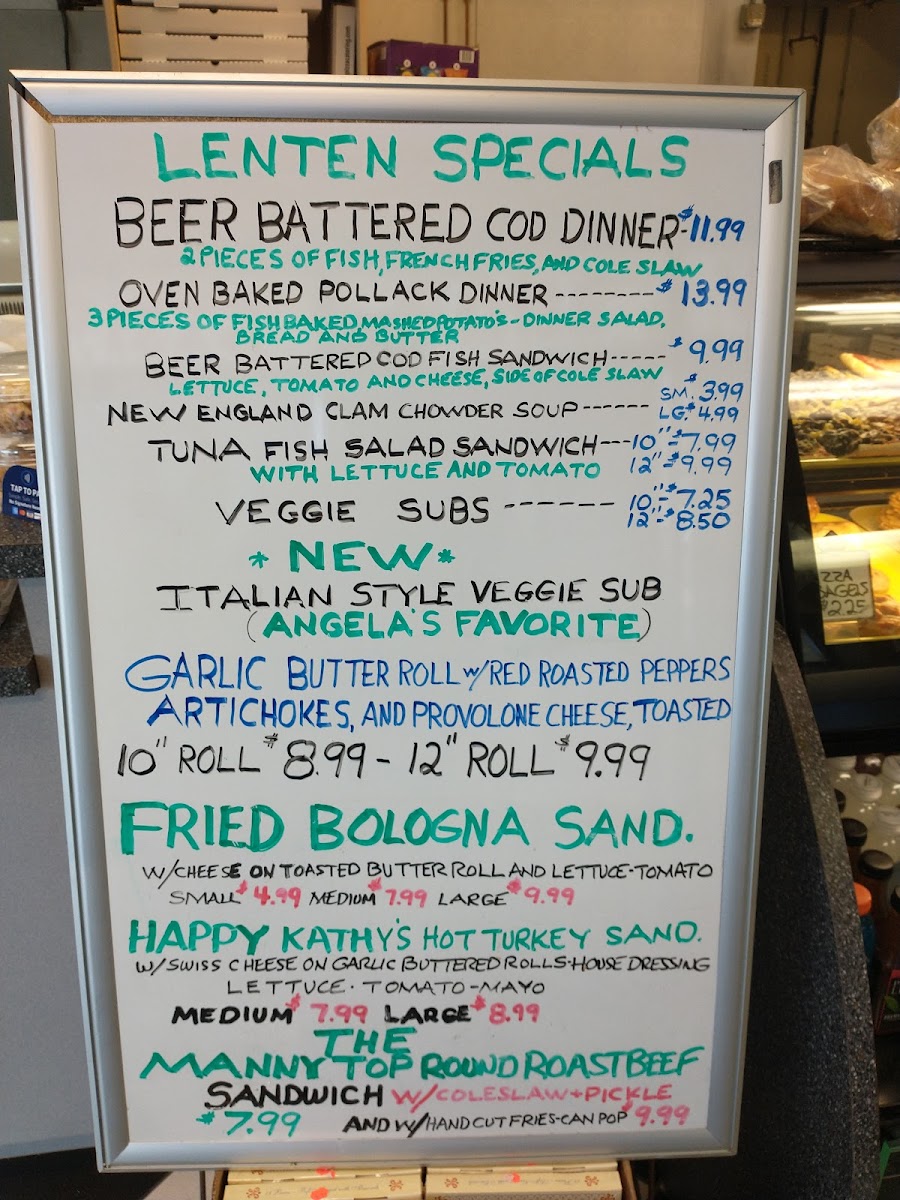 LENTEN SPECIALS
BEER BATTERED COD DINNER-$11.99
2 PIECES OF FISH, FRENCH FRIES, AND COLE SLAW
OVEN BAKED POLLACK DINNER --------- $13.99
3 PIECES OF FISH BAKED, MASHED POTATO'S - DINNER SALAD,
BREAD AND BUTTER
BEER BATTERED COD FISH SANDWICH----- $9.99
LETTUCE, TOMATO AND CHEESE, SIDE OF COLE SLAW
SM. $3.99
NEW ENGLAND CLAM CHOWDER SOUP ------ LG. $4.99
TUNA FISH SALAD SANDWICH---10"-$7.99
WITH LETTUCE AND TOMATO 12"-$9.99
VEGGIE SUBS ------- 10"-$7.25
12"-$8.50
* NEW *
ITALIAN STYLE VEGGIE SUB
(ANGELA'S FAVORITE)
GARLIC BUTTER ROLL w/RED ROASTED PEPPERS
ARTICHOKES, AND PROVOLONE CHEESE, TOASTED
10" ROLL $8.99 - 12" ROLL $9.99
FRIED BOLOGNA SAND.
W/CHEESE ON TOASTED BUTTER ROLL AND LETTUCE-TOMATO
SMALL $4.99 MEDIUM $7.99 LARGE $9.99
HAPPY KATHY'S HOT TURKEY SAND.
W/SWISS CHEESE ON GARLIC BUTTERED ROLLS-HOUSE DRESSING
LETTUCE - TOMATO - MAYO
MEDIUM $7.99 LARGE $8.99
THE
MANNY TOP ROUND ROAST BEEF
SANDWICH W/COLESLAW+PICKLE
$7.99 AND W/HAND CUT FRIES-CAN POP $9.99
TAP TO PA
ZZA
BAGELS
$2.25